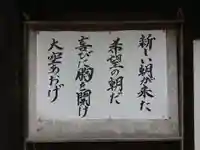 新しい朝が来た
希望の朝だ
喜びに胸を開け
大空あおげ